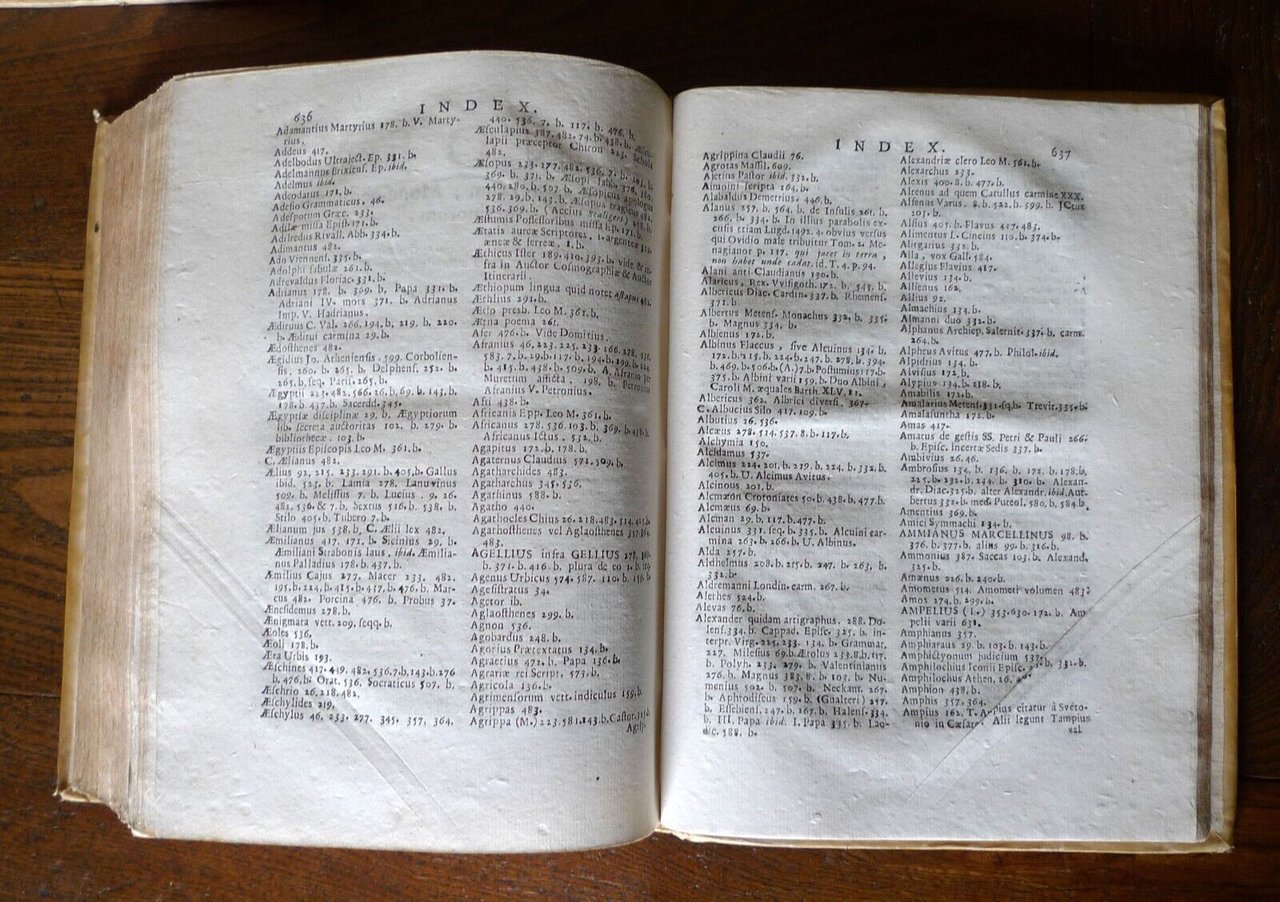 636
INDEX.
Adamantius Martyrius 178. b. V. Marty-
rius.
Addeus 417.
Adelbodus Ultraject. Ep. 331. b.
Adelmannus Brixiens. Ep. ibid.
Adelmus ibid.
Adeodatus 171. b.
Adesio Grammaticus. 46.
Adesporum Græc. 233.
Adilæ missa Epist. 171. b.
Adilredus Rivall. Abb. 334. b.
Adimantus 482.
Ado Viennens. 335. b.
Adolphi fabulæ 261. b.
Adrevaldus Floriac. 331. b.
Adrianus 178. b. 369. b. Papa 331. b.
Adriani IV. mors 371. b. Adrianus
Imp. V. Hadrianus.
Ædituus C. Val. 266. 194. b. 219. b. 220.
b. Æditui carmina 29. b.
Ædosthenes 482.
Ægidius Jo. Atheniensis. 599. Corbolien-
sis, 260. b. 265. b. Delphens. 252. b.
265. b. seq. Paris. 265. b.
Ægyptii 223. 482. 566. 26. b. 69. b. 143. b.
178. b. 437. b. Sacerdd. 345.
Ægyptiæ disciplinæ 29. b. Ægyptiorum
lib. secreta auctoritas 102. b. 279. b.
bibliothecæ. 103. b.
Ægyptiis Episcopis Leo M. 361. b.
C. Ælianus 482.
Ælius 92. 215. 233. 291. b. 405. b. Gallus
ibid. 523. b. Lamia 278. Lanuvinus
509. b. Melissus 7. b. Lucius. 9. 26.
482. 536. & 7. b. Sextus 516. b. 538. b.
Stilo 405. b. Tubero 7. b.
Ælianum jus 538. b. C. Ælii lex 482.
Æmilianus 417. 171. b. Sicinius 29. b.
Æmiliani Strabonis laus, ibid. Æmilia-
nus Palladius 178. b. 437. b.
Æmilius Cajus 277. Macer 233. 482.
195. b. 224. b. 415. b. 437. b. 476. b. Mar-
cus 482. Porcina 476. b. Probus 37.
Ænesidemus 278. b.
Ænigmata vett. 209. seqq. b.
Æoles 536.
Æoli 178. b.
Æra Urbis 193.
Æschines 417. 449. 482. 536. 7. b. 143. b. 276
b. 476. b. Orat. 536. Socraticus 507. b.
Æschrio 26. 218. 482.
Æschylides 219.
Æschylus 46. 233. 277. 345. 357. 364.
440. 536. 7. b. 117. b. 476. b.
Æsculapius 387. 482. 74. b. 438. b. Æscu-
lapii præceptor Chiron 223. Schola
Æsopus 233. 277. 482. 536. 7. b. 103. b.
369. b. 371. b. Æsopi fab. 174. 210.
440. 280. b. 507. b. Æsopicus apologus
278. 29. b. 143. b. Æsopus tragicus 482.
536. 369. b. (Accius Scaligero) 258. b.
Æstumis Possessoribus missa Ep. 171. b.
Ætatis aureæ Scriptores. 1. argenteæ 359.
æneæ & ferreæ. 1. b.
Æthicus Ister 189. 410. 393. b. vide & in-
fra in Auctor Cosmographiæ & Auctor
Itinerarii.
Æthiopum lingua quid notet astapus 482.
Æthlius 291. b.
Ætio presb. Leo M. 361. b.
Ætna poema 261.
Afer 476. b. Vide Domitius.
Afranius 46. 223. 225. 233. 266. 278. 536.
583. 7. b. 29. b. 117. b. 194. b. 199. b. 224.
b. 415. b. 438. b. 509. b. A. Afranio per
Muretum afficta. 198. b. Petronius
Afranius V. Petronius.
Afri 438. b.
Africanis Epp. Leo M. 361. b.
Africanus 278. 536. 103. b. 369. b. 438. b.
Africanus Ictus. 532. b.
Agapitus 172. b. 178. b.
Agaternus Claudius 571. 509. b.
Agatharchides 483.
Agatharchus 345. 536.
Agathinus 588. b.
Agatho 440.
Agathocles Chius 26. 218. 483. 514. 415. b.
Agathosthenes vel Aglaosthenes 357. 364.
483.
AGELLIUS infra GELLIUS 278. 369.
b. 371. b. 416. b. plura de eo 1. b. seq.
Agenus Urbicus 574. 587. 110. b. 159. b.
Agesistratus 34.
Agetor ib.
Aglaosthenes 299. b.
Agnon 536.
Agobardus 248. b.
Agorius Prætextatus 134. b.
Agraetius 472. b. Papa 136. b.
Agrariæ rei Script. 573. b.
Agricola 136. b.
Agrimensorum vett. indiculus 159. b.
Agrippas 483.
Agrippa (M.) 223. 581. 143. b. Castor. 315. b
Agrip-
INDEX.
637
Agrippina Claudii 76.
Agrotas Massil. 609.
Ajetius Pastor ibid. 332. b.
Aimoini scripta 264. b.
Alabaldus Demetrius 446. b.
Alanus 257. b. 564. b. de Insulis 261. b.
266. b. 334. b. In illius parabolis ex-
censis etiam Lugd. 1492. 4. obvius versus
qui Ovidio male tribuitur Tom. 2. Me-
nagianor p. 117. qui jacet in terra,
non habet unde cadat. id. T. 4. p. 94.
Alani anti-Claudianus 130. b.
Alaricus, Rex. Vvisigoth. 172. b. 543. b.
Albericus Diac. Cardin. 337. b. Rhemens.
371. b.
Albertus Metens. Monachus 332. b. 335.
b. Magnus 334. b.
Albienus 172. b.
Albinus Flaccus, sive Alcuinus 134. b.
172. b. 215. b. 224. b. 247. b. 278. b. 394
b. 469. b. 506. b. (A.) 7. b. Postumius 117. b.
375. b. Albini varii 159. b. Duo Albini
Caroli M. æquales Barth. XLV. 11.
Albericus 362. Albrici diversi. 367.
C. Albucius Silo 417. 109. b.
Albutius 26. 536.
Alcæus 278. 514. 537. 8. b. 117. b.
Alchymia 150.
Alcidamus 537.
Alcimus 224. 201. b. 219. b. 224. b. 332. b.
405. b. U. Alcimus Avitus.
Alcinous 201. b.
Alcmæon Crotoniates 50. b. 438. b. 477. b.
Alcmæus 69. b.
Alcman 29. b. 117. b. 477. b.
Alcuinus 331. seq. b. 335. b. Alcuini car-
mina 263. b. 266. b. U. Albinus.
Alda 257. b.
Aldhelmus 208. b. 215. b. 247. b. 263. b.
332. b.
Aldremanni Londin. carm. 267. b.
Alethes 524. b.
Alevas 76. b.
Alexander quidam artigraphus. 288. Do-
lens. 334. b. Cappad. Episc. 325. b. in-
terpr. Virg. 225. 233. 134. b. Grammar.
227. Milesius 69. b. Ætolus 233. 8. b. 117.
b. Polyh. 233. 279. b. Valentinianus
276. b. Magnus 383. 8. b. 103. b. Nu-
menius 502. b. 507. b. Neckam. 267.
b. Aphrodiseus 159. b. (Gualteri) 257.
b. Essebiens. 247. b. 267. b. Halens. 334.
b. III. Papa ibid. I. Papa 335. b. Lao-
dic. 588. b.
Alexandriæ clero Leo M. 561. b.
Alexarchus 233.
Alexis 400. 8. b. 477. b.
Alfenus ad quem Catullus carmine XXX.
Alfenus Varus. 8. b. 522. b. 599. b. JCtus
103. b.
Alfius 405. b. Flavius 417. 483.
Alimentus L. Cincius 110. b. 374. b.
Aligarius 332. b.
Alla, vox Gall. 584.
Allegius Flavius 417.
Allevius 134. b.
Allienus 162.
Allius 92.
Almachius 134. b.
Almanni duo 332. b.
Alphanus Archiep. Salernit. 337. b. carm.
264. b.
Alpheus Avitus 477. b. Philol. ibid.
Alpidrius 134. b.
Alvisius 172. b.
Alypius 134. b. 118. b.
Amabilis 172. b.
Amalarius Metens. 331. sq. b. Trevir. 335. b.
Amalasuntha 172. b.
Amas 417.
Amatus de gestis SS. Petri & Pauli 266.
b. Episc. incertæ Sedis 337. b.
Ambivius 26. 46.
Ambrosius 134. b. 136. b. 172. b. 178. b.
225. b. 232. b. 244. b. 310. b. Alexan-
dr. Diac. 325. b. alter Alexandr. ibid. Aut-
bertus 332. b. med. Puteol. 580. b. 584. b.
Amentius 369. b.
Amici Symmachi 134. b.
AMMIANUS MARCELLINUS 98. b.
376. b. 377. b. alius 99. b. 316. b.
Ammonius 387. Saccas 103. b. Alexand.
325. b.
Amœnus 226. b. 240. b.
Amometus 514. Amometi volumen 483.
Amos 274. b. 299. b.
AMPELIUS (L.) 353. 630. 172. b. Am
pelii varii 631. b.
Amphianus 357.
Amphiaraus 29. b. 103. b. 143. b.
Amphictyonum judicium 537. b.
Amphilochius Iconii Episc. b. 331. b.
Amphilochus Athen. 26.
Amphion 438. b.
Amphis 357. 364.
Ampius 162. T. Ampius citatur à Sveto-
nio in Cæsar. Alii legunt Tampius
vel